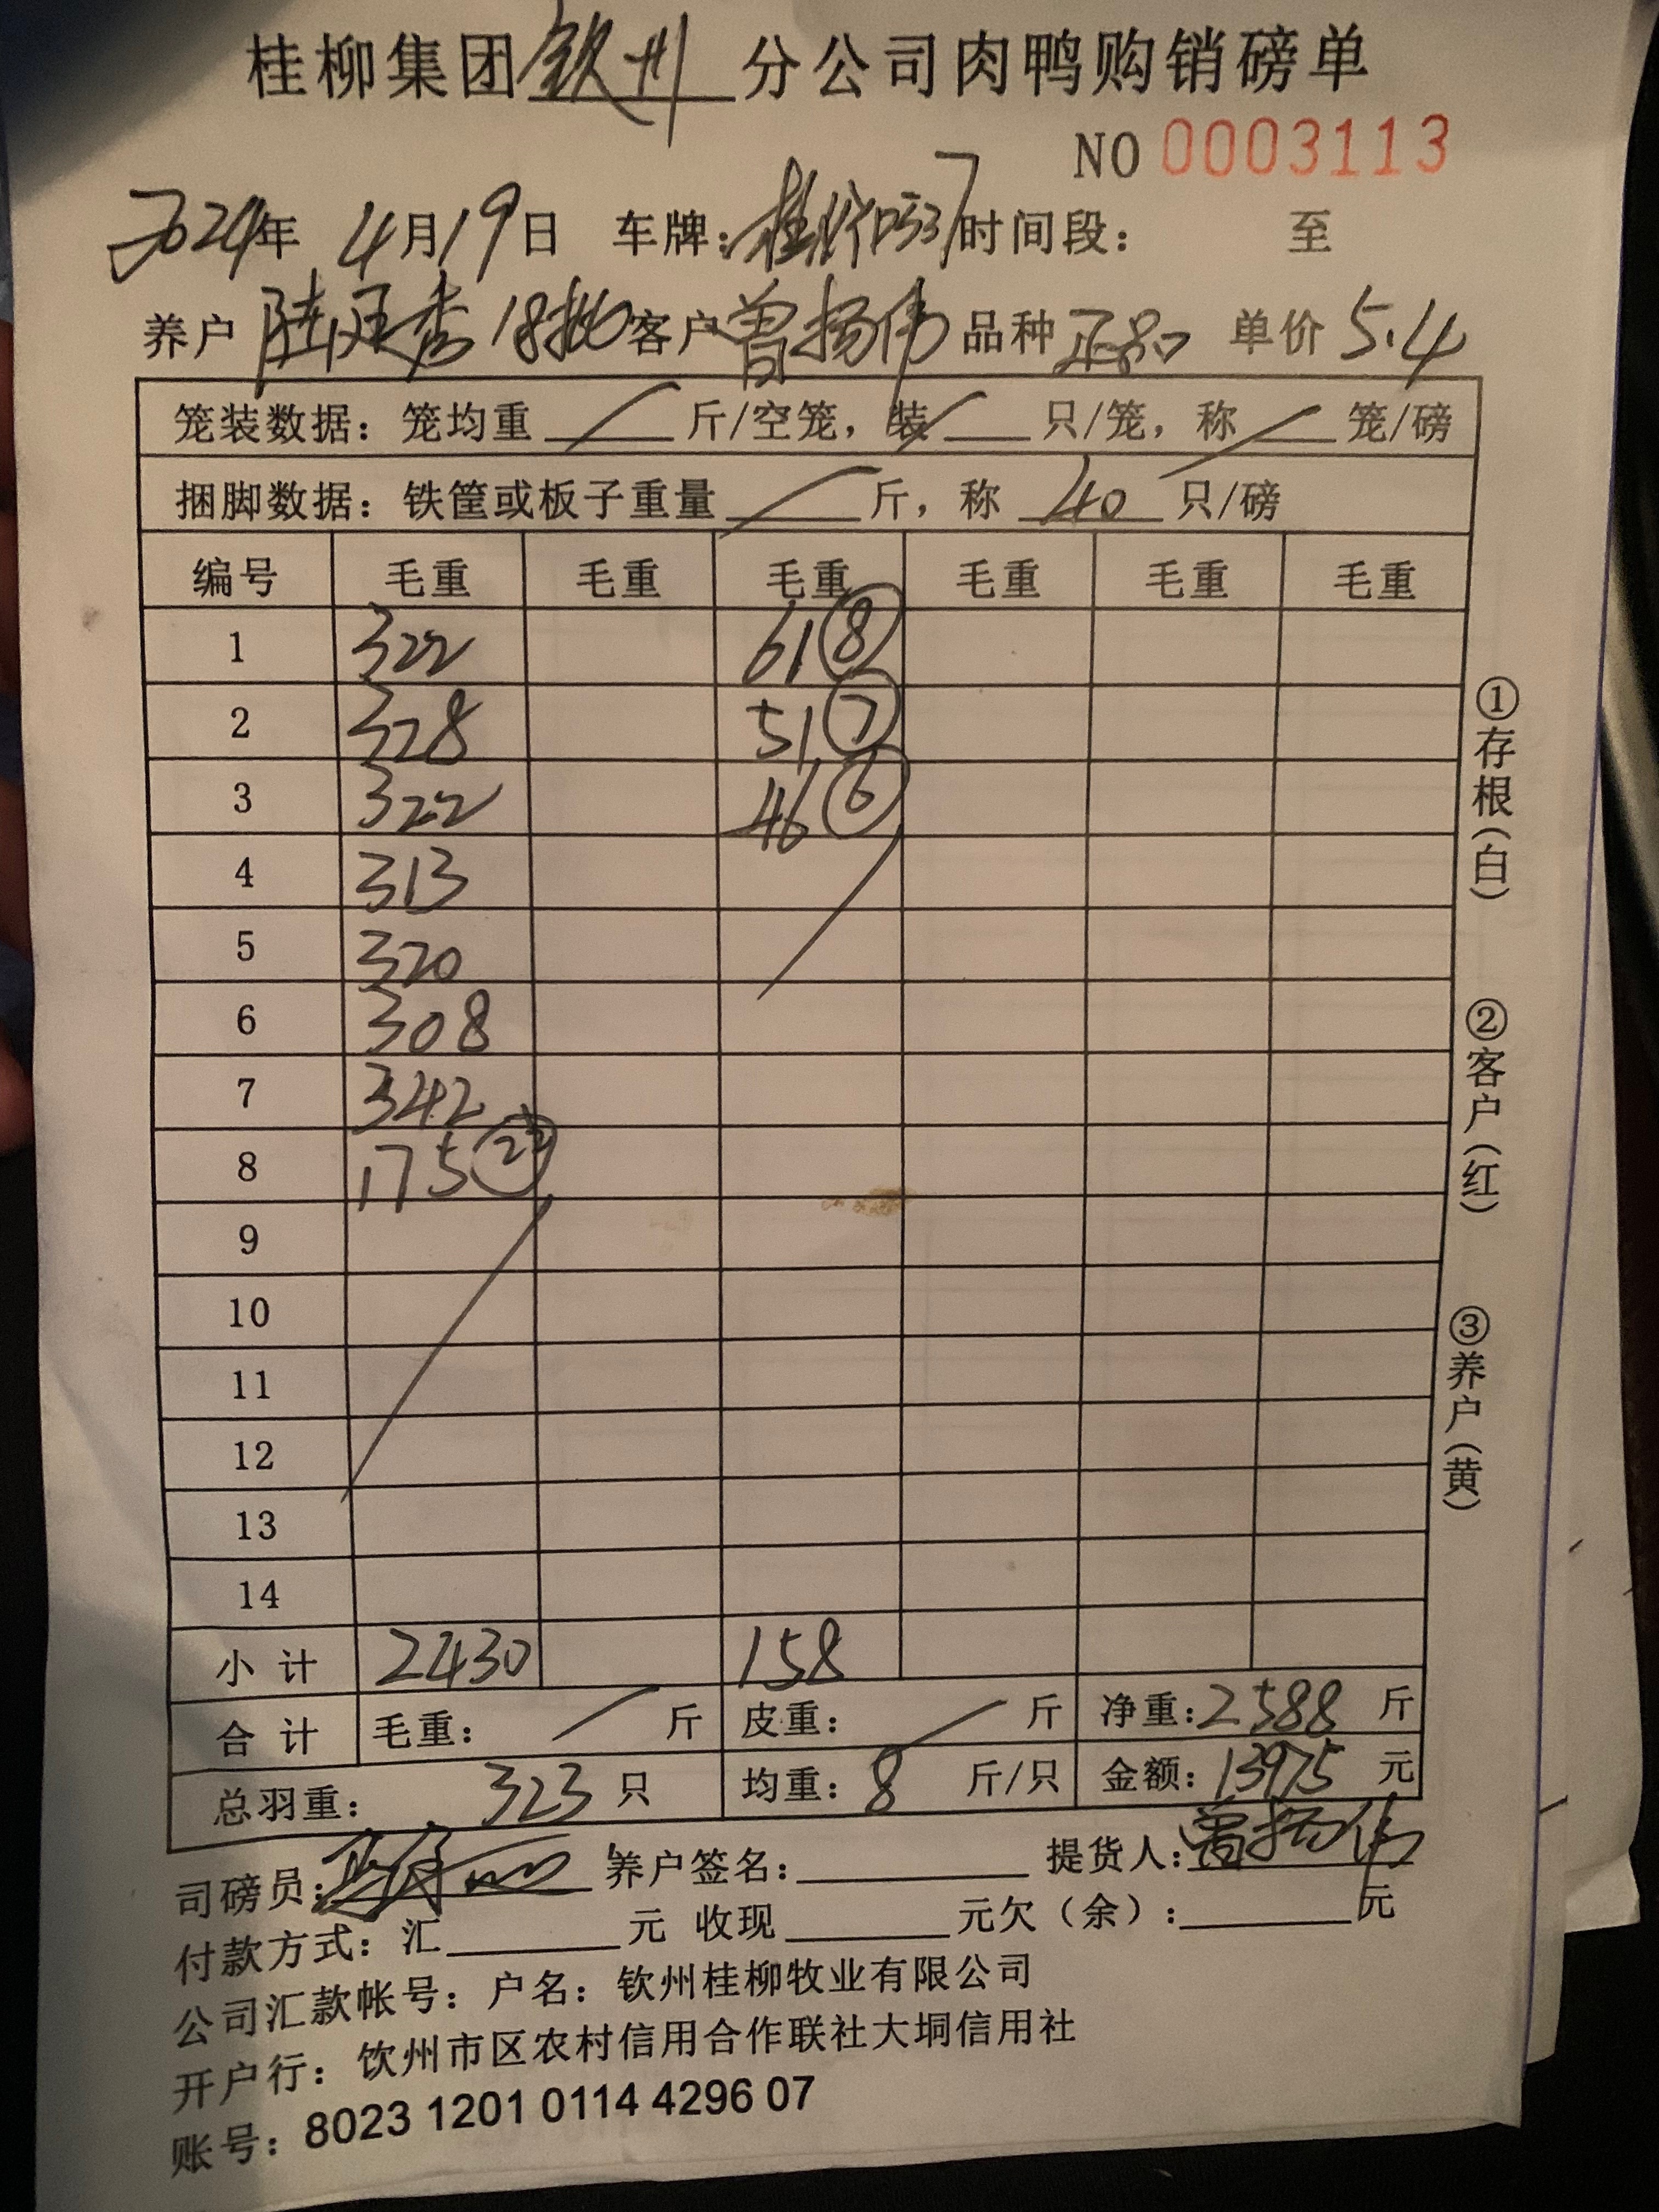 桂柳集团钦州分公司肉鸭购销磅单
NO 0003113
2024年 4月19日 车牌: 时间段: 至
养户 陆廷秀 18批 客户 曾扬伟 品种 正品 单价 5.4
笼装数据: 笼均重 / 斤/空笼, 装 / 只/笼, 称 / 笼/磅
捆脚数据: 铁筐或板子重量 / 斤, 称 40 只/磅
编号 毛重 毛重 毛重 毛重 毛重 毛重
1 322 61 ⑧
2 328 51 ⑦
3 322 46 ⑥
4 313
5 320
6 308
7 342
8 175 ㉒
9
10
11
12
13
14
小计 2430 158
合计 毛重: / 斤 皮重: / 斤 净重: 2588 斤
总羽重: 323 只 均重: 8 斤/只 金额: 13975 元
司磅员: 养户签名: 提货人: 曾扬伟
付款方式: 汇 元 收现 元欠(余): 元
公司汇款帐号: 户名: 钦州桂柳牧业有限公司
开户行: 钦州市区农村信用合作联社大垌信用社
账号: 8023 1201 0114 4296 07
①存根(白)
②客户(红)
③养户(黄)